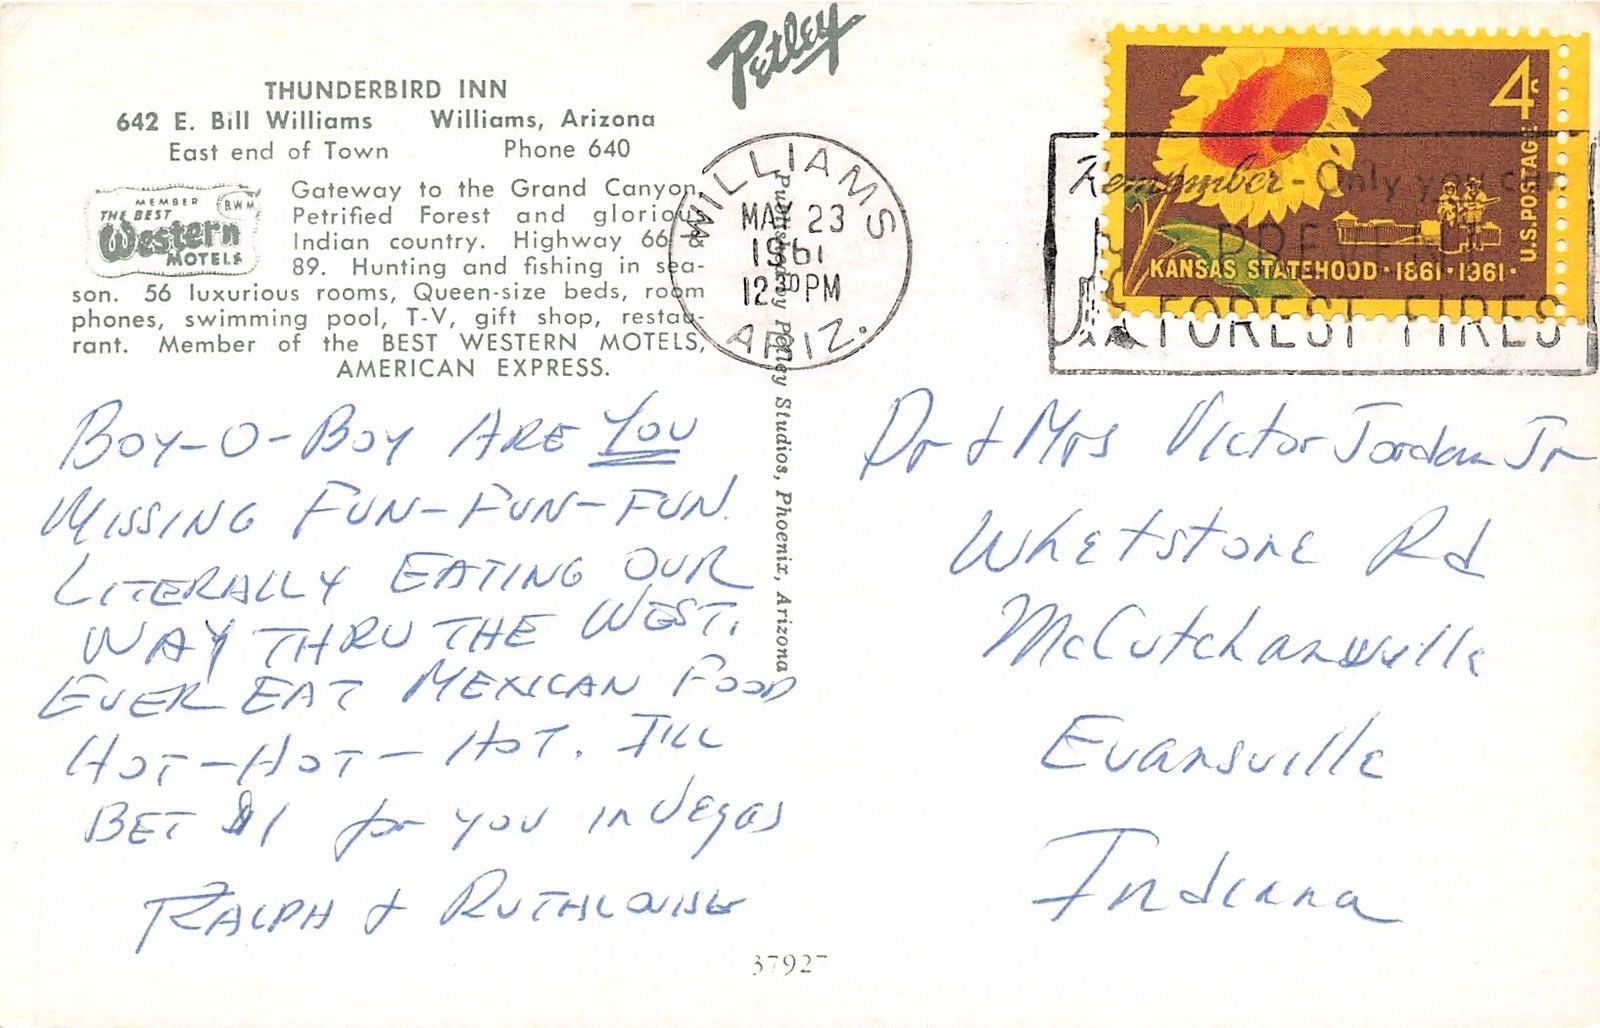 Petley
THUNDERBIRD INN
642 E. Bill Williams Williams, Arizona
East end of Town Phone 640
MEMBER
B.W.M
THE BEST
Western
MOTELS
Gateway to the Grand Canyon,
Petrified Forest and glorious
Indian country. Highway 66 &
89. Hunting and fishing in sea-
son. 56 luxurious rooms, Queen-size beds, room
phones, swimming pool, T-V, gift shop, restau-
rant. Member of the BEST WESTERN MOTELS,
AMERICAN EXPRESS.
BOY-O-BOY ARE YOU
MISSING FUN-FUN-FUN.
LITERALLY EATING OUR
WAY THRU THE WEST.
EVER EAT MEXICAN FOOD
HOT-HOT-HOT. I'LL
BET $1 for you in Vegas
RALPH & RUTHLOUISE
Published by Petley Studios, Phoenix, Arizona
37927
WILLIAMS
MAY 23
1961
12 30 PM
ARIZ.
4c
U.S. POSTAGE
KANSAS STATEHOOD · 1861 · 1961 ·
Remember - Only you can
PREVENT
FOREST FIRES
Dr & Mrs Victor Jordan Jr
Whetstone Rd
McCutchanville
Evansville
Indiana